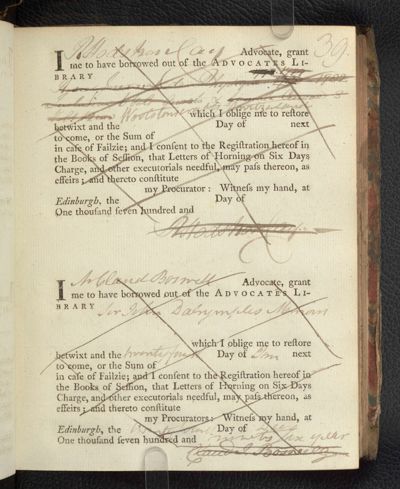 39
I Advocate, grant
me to have borrowed out of the ADVOCATES LI-
BRARY
which I oblige me to restore
betwixt and the Day of next
to come, or the Sum of
in case of Failzie; and I consent to the Registration hereof in
the Books of Session, that Letters of Horning on Six Days
Charge, and other executorials needful, may pass thereon, as
effeirs; and thereto constitute
my Procurator: Witness my hand, at
Edinburgh, the Day of
One thousand seven hundred and
I Claud Boswell Advocate, grant
me to have borrowed out of the ADVOCATES LI-
BRARY
Sir John Dalrymples Memoirs
which I oblige me to restore
betwixt and the twenty four Day of Jan next
to come, or the Sum of
in case of Failzie; and I consent to the Registration hereof in
the Books of Session, that Letters of Horning on Six Days
Charge, and other executorials needful, may pass thereon, as
effeirs; and thereto constitute
my Procurators: Witness my hand, at
Edinburgh, the Day of
One thousand seven hundred and ninety six years
Claud Boswell